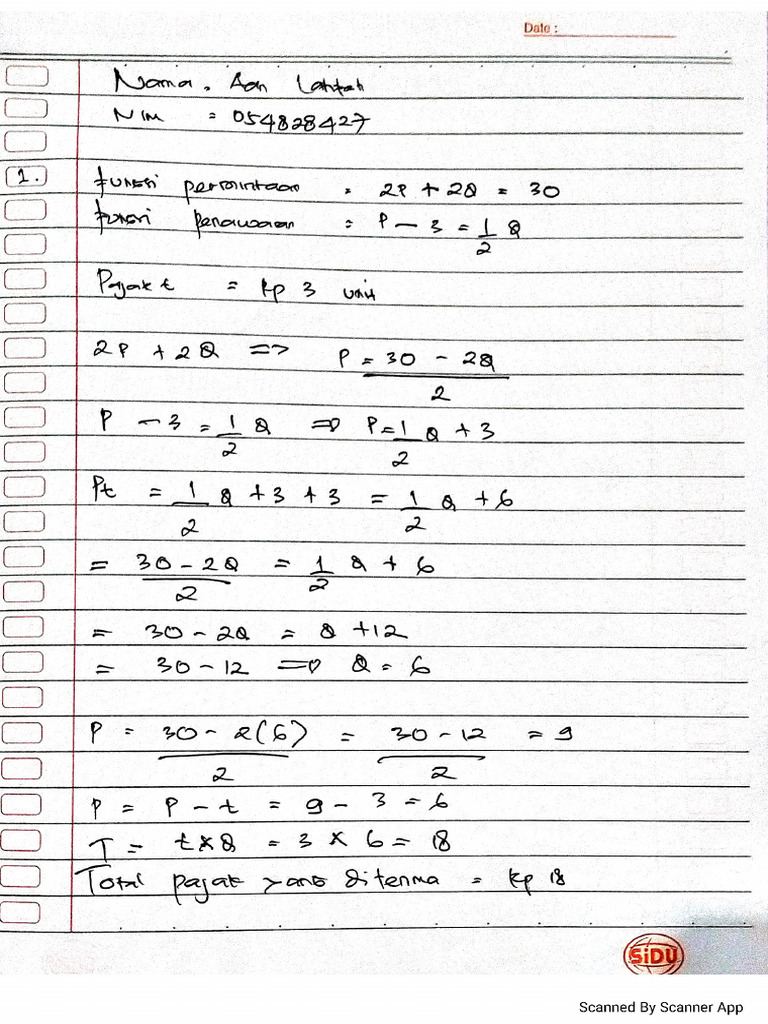 Date :
Nama . Aan Lathfah
NIM = 054828427
1. fungsi permintaan = 2P + 2Q = 30
fungsi penawaran = P - 3 = 1/2 Q
Pajak t = Rp 3 unit
2P + 2Q => P = 30 - 2Q / 2
P - 3 = 1/2 Q => P = 1/2 Q + 3
Pt = 1/2 Q + 3 + 3 = 1/2 Q + 6
= 30 - 2Q / 2 = 1/2 Q + 6
= 30 - 2Q = Q + 12
= 30 - 12 => Q = 6
P = 30 - 2(6) / 2 = 30 - 12 / 2 = 9
P = P - t = 9 - 3 = 6
T = t x Q = 3 x 6 = 18
Total pajak yang diterima = Rp 18
SiDU
Scanned By Scanner App